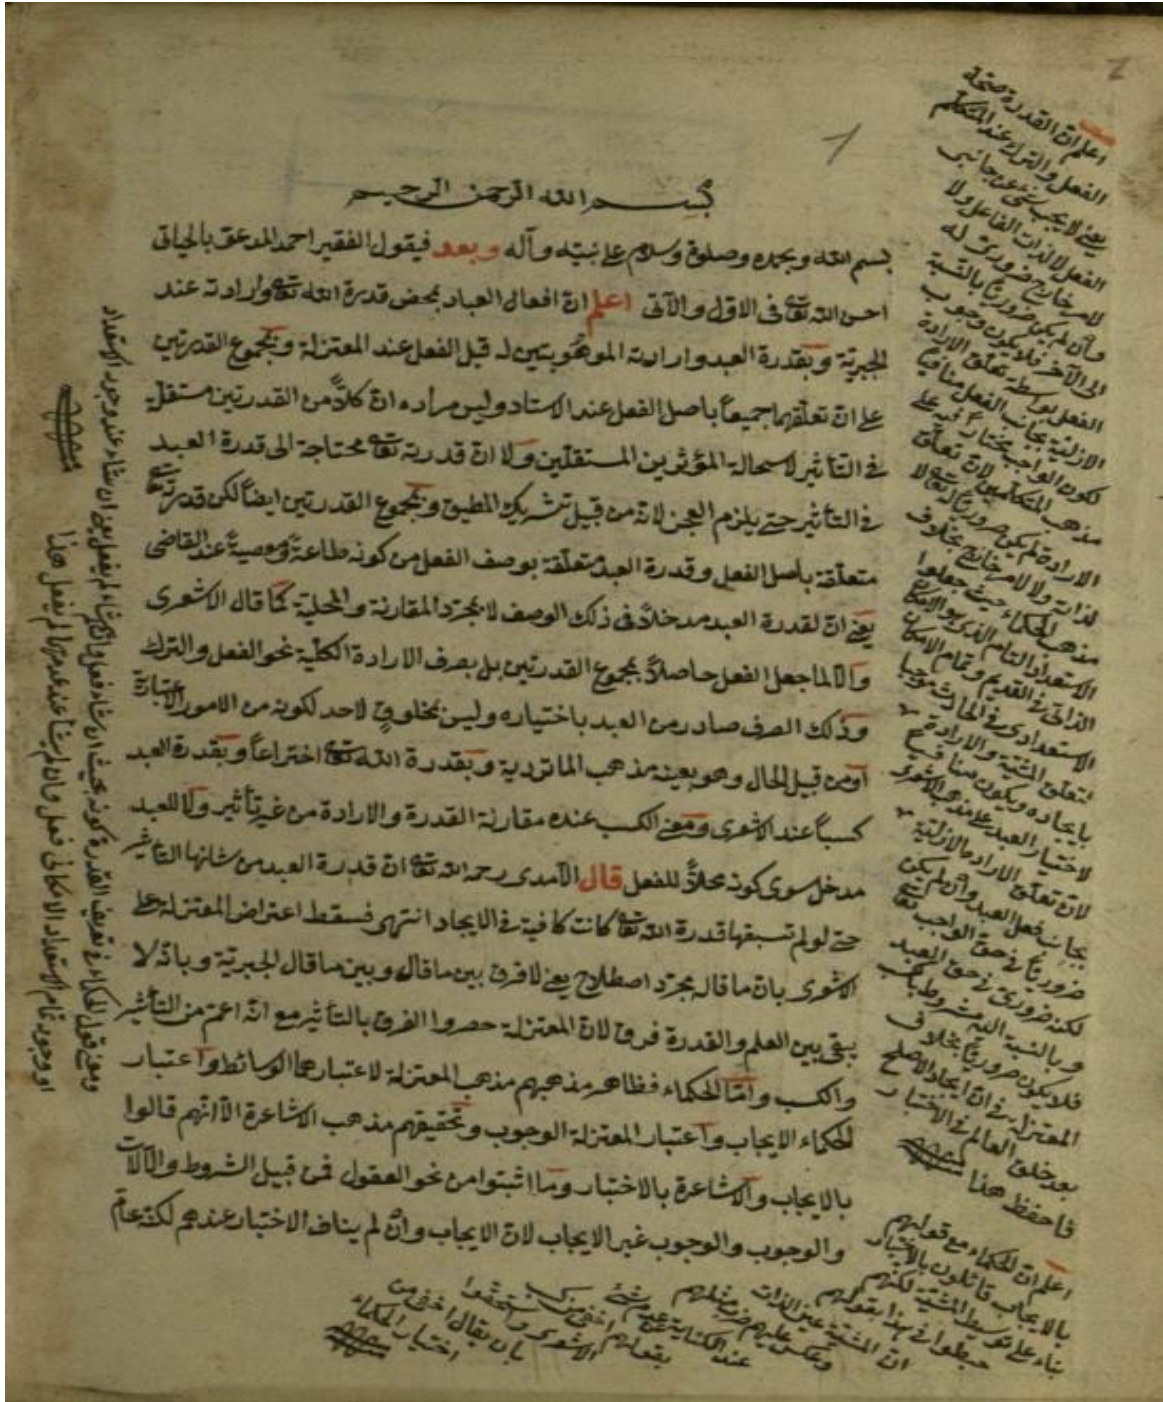 بسم الله الرحمن الرحيم
بسم الله وبحمده وصلوة وسلام على نبيه وآله وبعد فيقول الفقير احمد المدعو بالحياتى
احسن الله تعالى فى الاول والآتى اعلم ان افعال العباد بمحض قدرة الله تعالى وارادته عند
الجبرية وبقدرة العبد وارادته الموهوبتين له قبل الفعل عند المعتزلة وبمجموع القدرتين
على ان تعلقهما جميعاً باصل الفعل عند الاستاد وليس مراده ان كلاً من القدرتين مستقلة
فى التأثير لاستحالة المؤثرين المستقلين ولا ان قدرته تعالى محتاجة الى قدرة العبد
فى التأثير حتى يلزم العجز لانه من قبيل تشريك المطيق وبمجموع القدرتين ايضاً لكن قدرته تعالى
متعلقة باصل الفعل وقدرة العبد متعلقة بوصف الفعل من كونه طاعة ومعصية عند القاضى
يعنى ان لقدرة العبد مدخلاً فى ذلك الوصف لا بمجرد المقارنة والمحلية كما قال الاشعرى
والا لما جعل الفعل حاصلاً بمجموع القدرتين بل بصرف الارادة الكلية نحو الفعل والترك
وذلك الصرف صادر من العبد باختياره وليس بمخلوق لاحد لكونه من الامور الاعتبارية
او من قبيل الحال وهو بعينه مذهب الماتوردية وبقدرة الله تعالى اختراعاً وبقدرة العبد
كسباً عند الاشعرى ومعنى الكسب عنده مقارنة القدرة والارادة من غير تأثير ولا للعبد
مدخل سوى كونه محلاً للفعل قال الآمدى رحمه الله تعالى ان قدرة العبد من شانها التأثير
حتى لو لم تسبقها قدرة الله تعالى كانت كافية فى الايجاد انتهى فسقط اعتراض المعتزلة على
الاشعرى بان ما قاله مجرد اصطلاح يعنى لا فرق بين ما قال وبين ما قال الجبرية وبانه لا
يبقى بين العلم والقدرة فرق لان المعتزلة حصروا الفرق بالتأثير مع انه اعم من التأثير
والكسب واما الحكماء فظاهر مذهبهم مذهب المعتزلة لاعتبارهما الوسائط واعتبار
الحكماء الايجاب واعتبار المعتزلة الوجوب وتحقيقهم مذهب الاشاعرة الا انهم قالوا
بالايجاب والاشاعرة بالاختيار وما اثبتوا من نحو العقول فمن قبيل الشروط والآلات
والوجوب والوجوب غير الايجاب لان الايجاب وان لم يناف الاختيار عندهم لكنه عام
اعلم ان القدرة صحة
الفعل والترك عند المتكلم
يعنى لا يجب شئ من جانبى
الفعل لا لذات الفاعل ولا
لامر خارج ضرورى له
وان لم يكن ضرورياً بالنسبة
الى الآخر فلا يكون وجوب
الفعل بوسطة تعلق الارادة
الازلية بجانب الفعل منافياً
لكون الواجب مختاراً فيه على
مذهب المتكلمين لان تعلق
الارادة لم يكن ضرورياً له تعالى لا
لذاته ولا لامر خارج بخلاف
مذهب الحكماء حيث جعلوا
الاستعداد التام الذى هو الامكان
الذاتى فى القديم وتمام الامكان
الاستعدادى فى الحادث موجبا
لتعلق المشية والارادة
بايجاده ويكون منافياً
لاختيار العبد على مذهب الاشعرى
لان تعلق الارادة الازلية
بجانب فعل العبد وان لم يكن
ضرورياً فى حق الواجب تعالى
لكنه ضرورى فى حق العبد
وبالنسبة اليه مشروط بكسب
فلا يكون ضرورياً بخلاف
المعتزلة فى ان ايجاد الاصلح
بعد خلق العالم فى الاختيار
فاحفظ هذا
اعلم ان الحكماء مع قولهم
بالايجاب قائلون بالاختيار
بناء على توسيط المشية لكنهم
حبطوا فى هذا بقولهم
ان المشية عين الذات
بان يقال اخفى من
اختيار الحكماء
ومعنى قول الحكماء فى تعريف القدرة كونه بحيث ان شاء فعل وان لم يشاء لم يفعل يعنى ان شاء عند وجود الاستعداد
او وجود تمام الاستعداد الامكانى فعل وان لم يشأ عند عدمها لم يفعل هذا